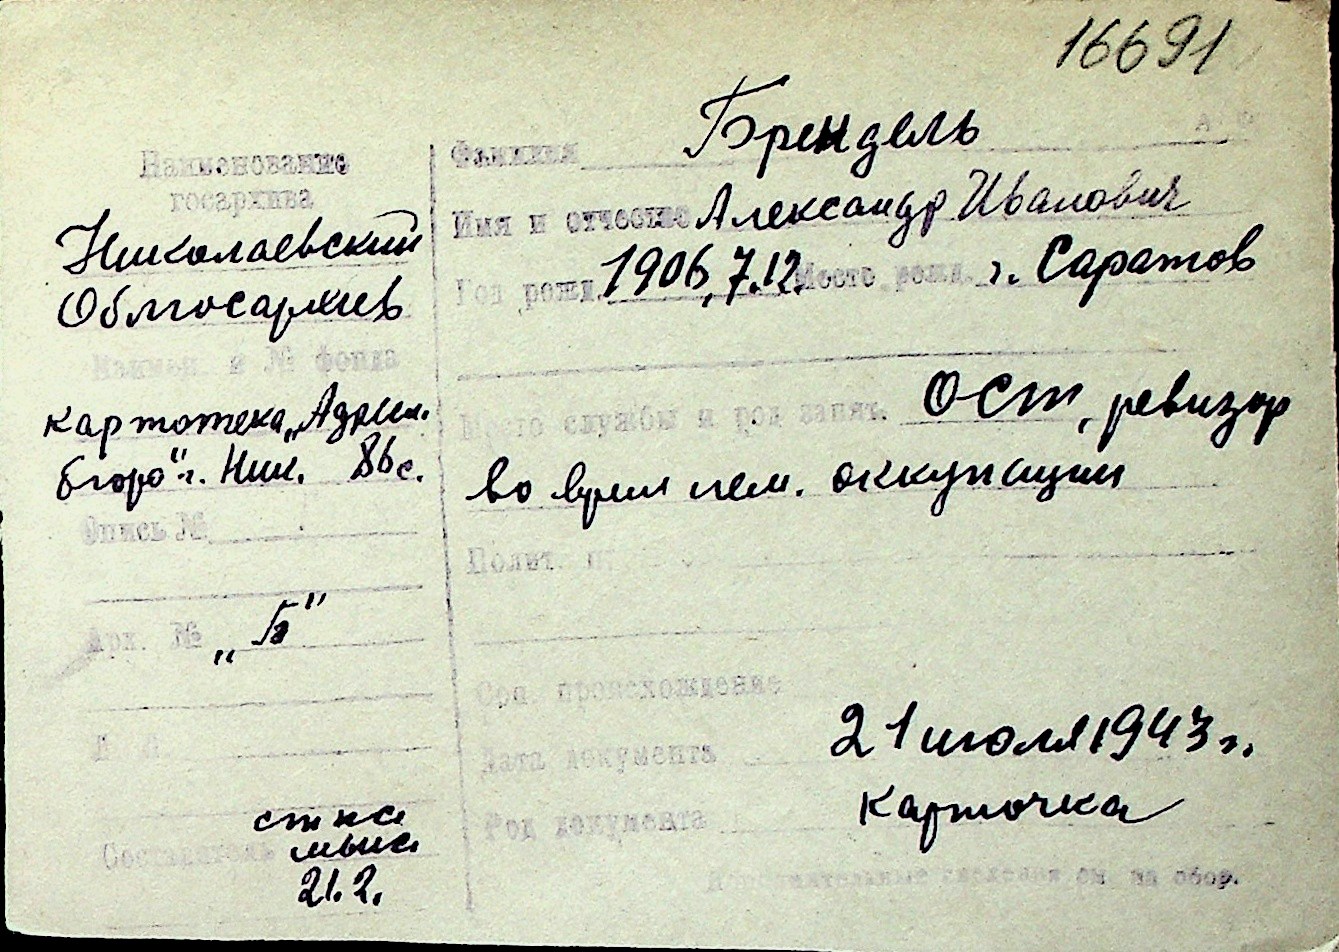 16691
Наименование
госархива
Николаевский
Облгосархив
Наимен. и № фонда
картотека „Адресн.
бюро" г. Ник. 86 с.
Опись №
Арх. № „Б"
Л. Л.
Составитель
21.2.
Фамилия Брендель
Имя и отчество Александр Иванович
Год рожд. 1906, 7.12. Место рожд. г. Саратов
Место службы и род занят. ОСТ, ревизор
во время нем. оккупации
Полит. п.
Соц. происхождение
Дата документа 21 июля 1943 г.
Род документа карточка
Дополнительные сведения см. на обор.